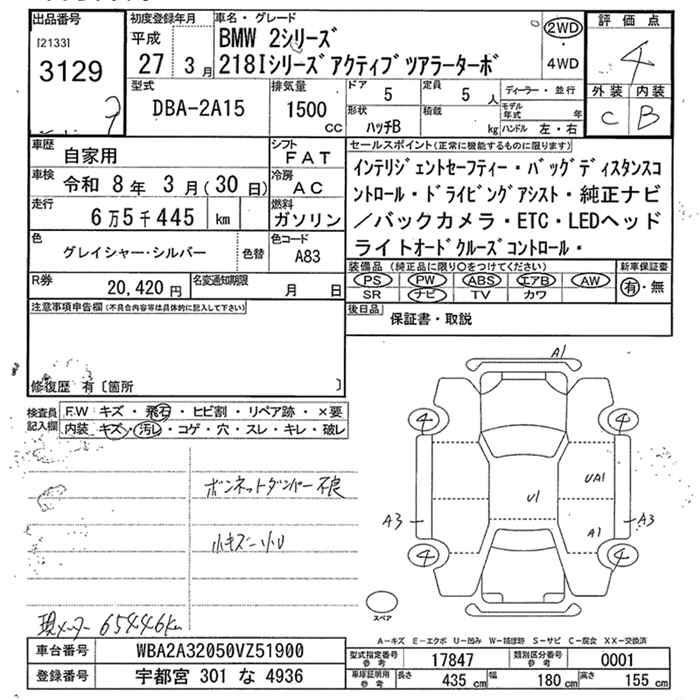 出品番号 初度登録年月 車名・グレード 評価点
[2133] 平成 BMW 2シリーズ 2WD 4
3129 27 3月 218Iシリーズアクティブツアラーターボ 4WD
型式 排気量 ドア 定員 ディーラー・並行 外装 内装
DBA-2A15 1500 CC 5 5 人 モデル年式 年 C B
形状 積載
ハッチB kg ハンドル 左・右
車歴 自家用 シフト FAT セールスポイント(正常に機能するものに限ります)
車検 令和 8年 3月(30日) 冷房 AC インテリジェントセーフティー・バックディスタンスコ
ントロール・ドライビングアシスト・純正ナビ
走行 6万5千445 km 燃料 ガソリン /バックカメラ・ETC・LEDヘッド
色 グレイシャー・シルバー 色替 色コード A83 ライトオードクルーズコントロール・
装備品(純正品に限り○をつけてください) 新車保証書
R券 20,420円 名変通知期限 月 日 PS PW ABS エアB AW 有・無
SR ナビ TV カワ
注意事項申告欄(不具合内容等は具体的に記入して下さい) 後日品 保証書・取説
修復歴 有〔箇所 〕
検査員記入欄 F.W キズ・飛石・ヒビ割・リペア跡・×要
内装 キズ・汚レ・コゲ・穴・スレ・キレ・破レ
A1
4 4
ボンネットダンパー不良
U1 UA1
A3 A1 A3
小キズ小U
4 4
スペア
現メーター 65446km
A-キズ E-エクボ U-凹み W-補修跡 S-サビ C-腐食 XX-交換済
車台番号 WBA2A32050VZ51900 型式指定番号 参考 17847 類別区分番号 参考 0001
登録番号 宇都宮 301 な 4936 車庫証明用 参考 長さ 435 cm 幅 180 cm 高さ 155 cm